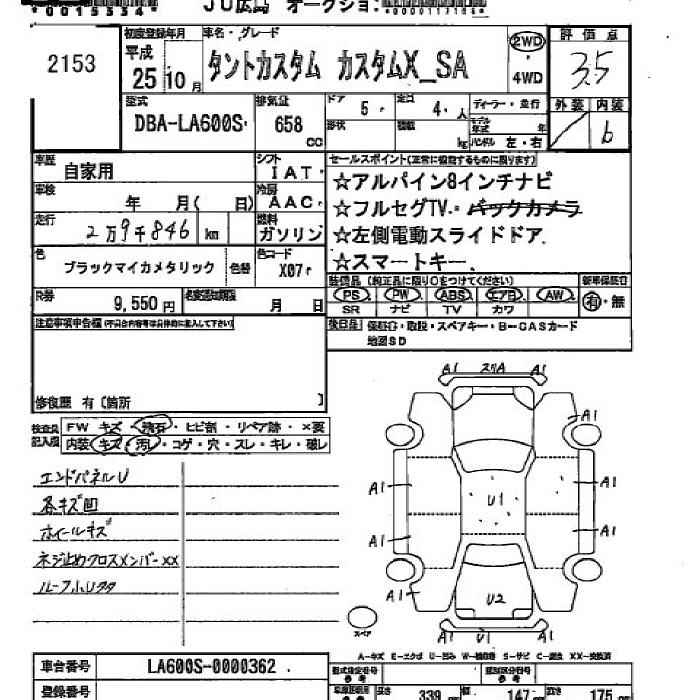 *0015334*
JU広島 オークション
2153
初度登録年月
平成
25 10 月
車名・グレード
タントカスタム カスタムX_SA
2WD
・
4WD
評価点
3.5
外装 内装
b
型式
DBA-LA600S
排気量
658
CC
ドア 5
定員 4 人
形状
積載 kg
ディーラー・並行
モデル年式 年
ハンドル 左・右
車歴
自家用
シフト
IAT
車検
年 月( 日)
冷房
AAC
走行
2万9千846 km
燃料
ガソリン
色
ブラックマイカメタリック
色替
色コード
X07
R券
9,550 円
名変認知期限
月 日
セールスポイント(正常に機能するものに限ります)
☆アルパイン8インチナビ
☆フルセグTV・バックカメラ
☆左側電動スライドドア
☆スマートキー
装備品(純正品に限り○をつけてください)
PS PW ABS エアB AW
SR ナビ TV カワ
新車保証書
有・無
後日品 保証書・取説・スペアキー・B-CASカード
地図SD
注意事項申告欄(不具合内容等は具体的に記入して下さい)
修復歴 有〔箇所 〕
検査員
記入欄
FW キズ ・ 飛石 ・ ヒビ割 ・ リペア跡 ・ ×要
内装 キズ ・ 汚レ ・ コゲ ・ 穴 ・ スレ ・ キレ ・ 破レ
エンドパネルU
各キズ凹
ホイールキズ
ネジ止めクロスメンバーXX
ルーフ小Uタタ
A1 スリA A1
A1
A1 A1
U1
A1 A1
A1 U2
A1 U1 A1
スペア
A-キズ E-エクボ U-凹み W-補修跡 S-サビ C-腐食 XX-交換済
車台番号
LA600S-0000362
登録番号
型式指定番号
参考
類別区分番号
参考
長さ 339
幅 147
高さ 175